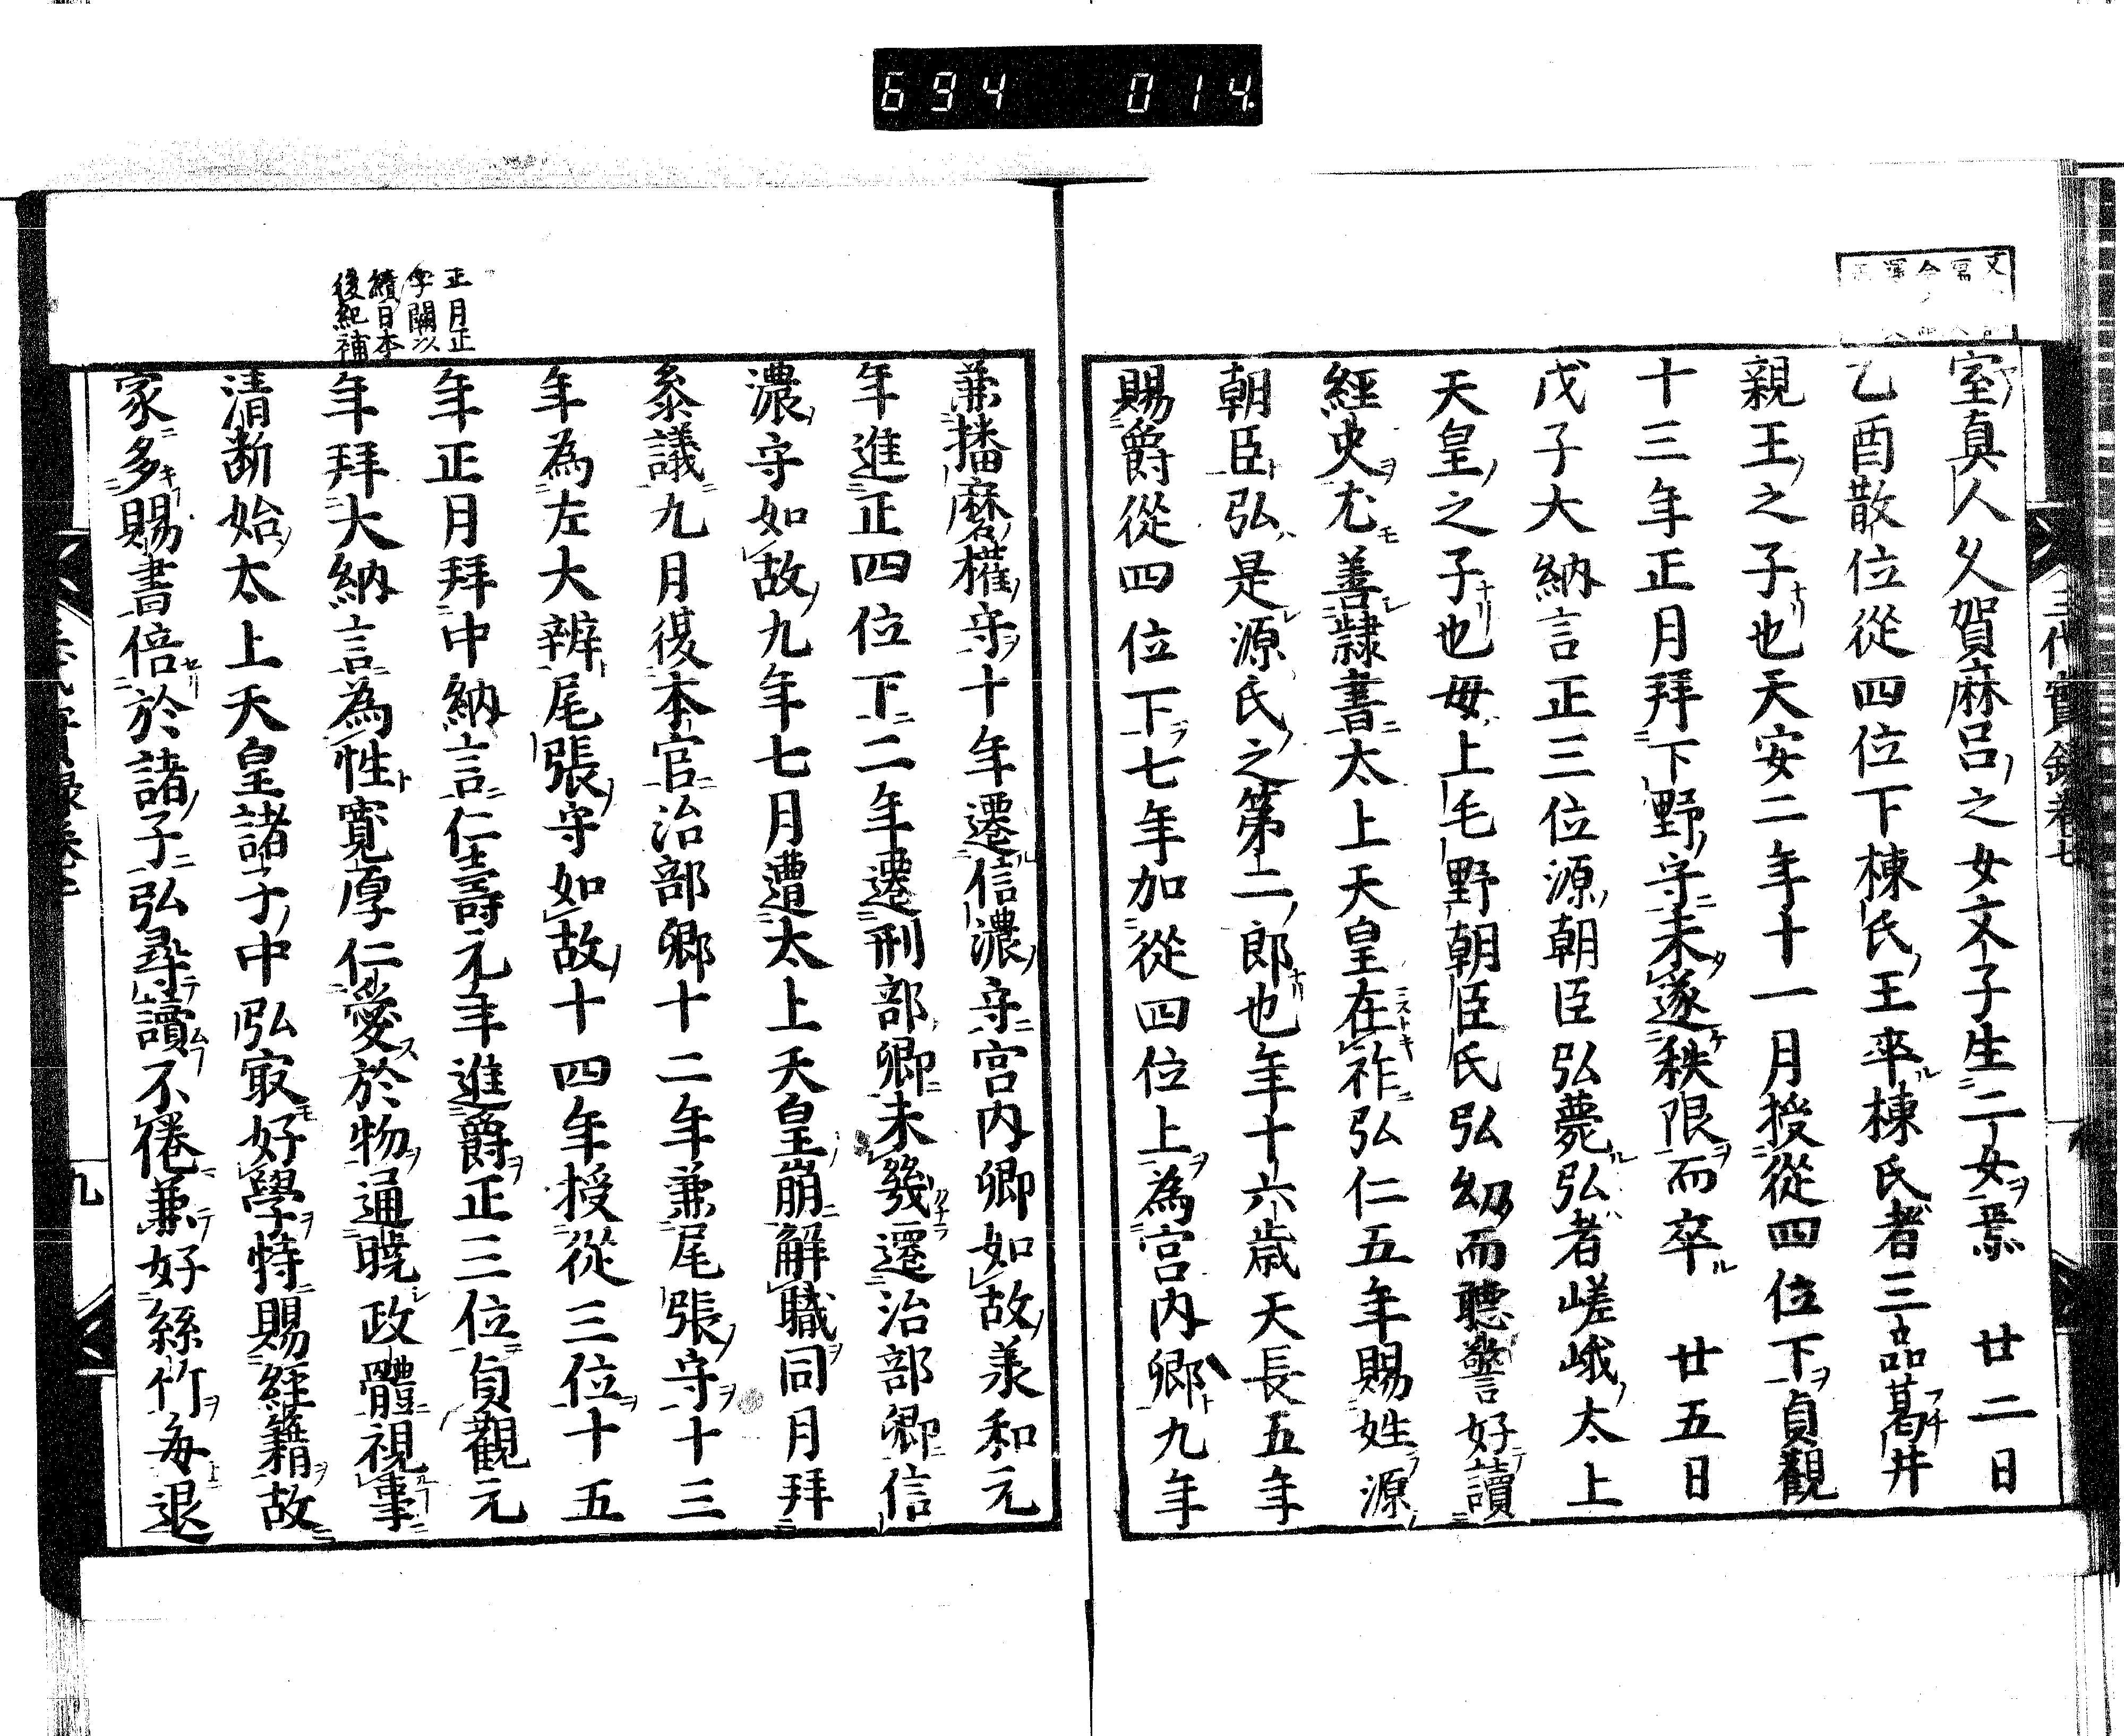 694 014
三代實錄卷七
室真人久賀麻呂之女文子生二女焉 廿二日
乙酉散位從四位下棟氏王卒棟氏者三品葛井
親王之子也天安二年十一月授從四位下貞觀
十三年正月拜下野守未遂秩限而卒 廿五日
戊子大納言正三位源朝臣弘薨弘者嵯峨太上
天皇之子也母上毛野朝臣氏弘幼而聰警好讀
經史尤善隷書太上天皇在祚弘仁五年賜姓源
朝臣弘是源氏之第二郎也年十六歳天長五年
賜爵從四位下七年加從四位上為宮内卿九年
兼播磨權守十年遷信濃守宮内卿如故羕和元
年進正四位下二年遷刑部卿未幾遷治部卿信
濃守如故九年七月遭太上天皇崩解職同月拜
叅議九月復本官治部卿十二年兼尾張守十三
年為左大辨尾張守如故十四年授從三位十五
年正月拜中納言仁壽元年進爵正三位貞觀元
年拜大納言為性寛厚仁愛於物通曉政體視事
清斷始太上天皇諸子中弘㝡好學特賜經籍故
家多賜書倍於諸子弘尋讀不倦兼好絲竹毎退
正月正
字闕以
續日本
後紀補
九